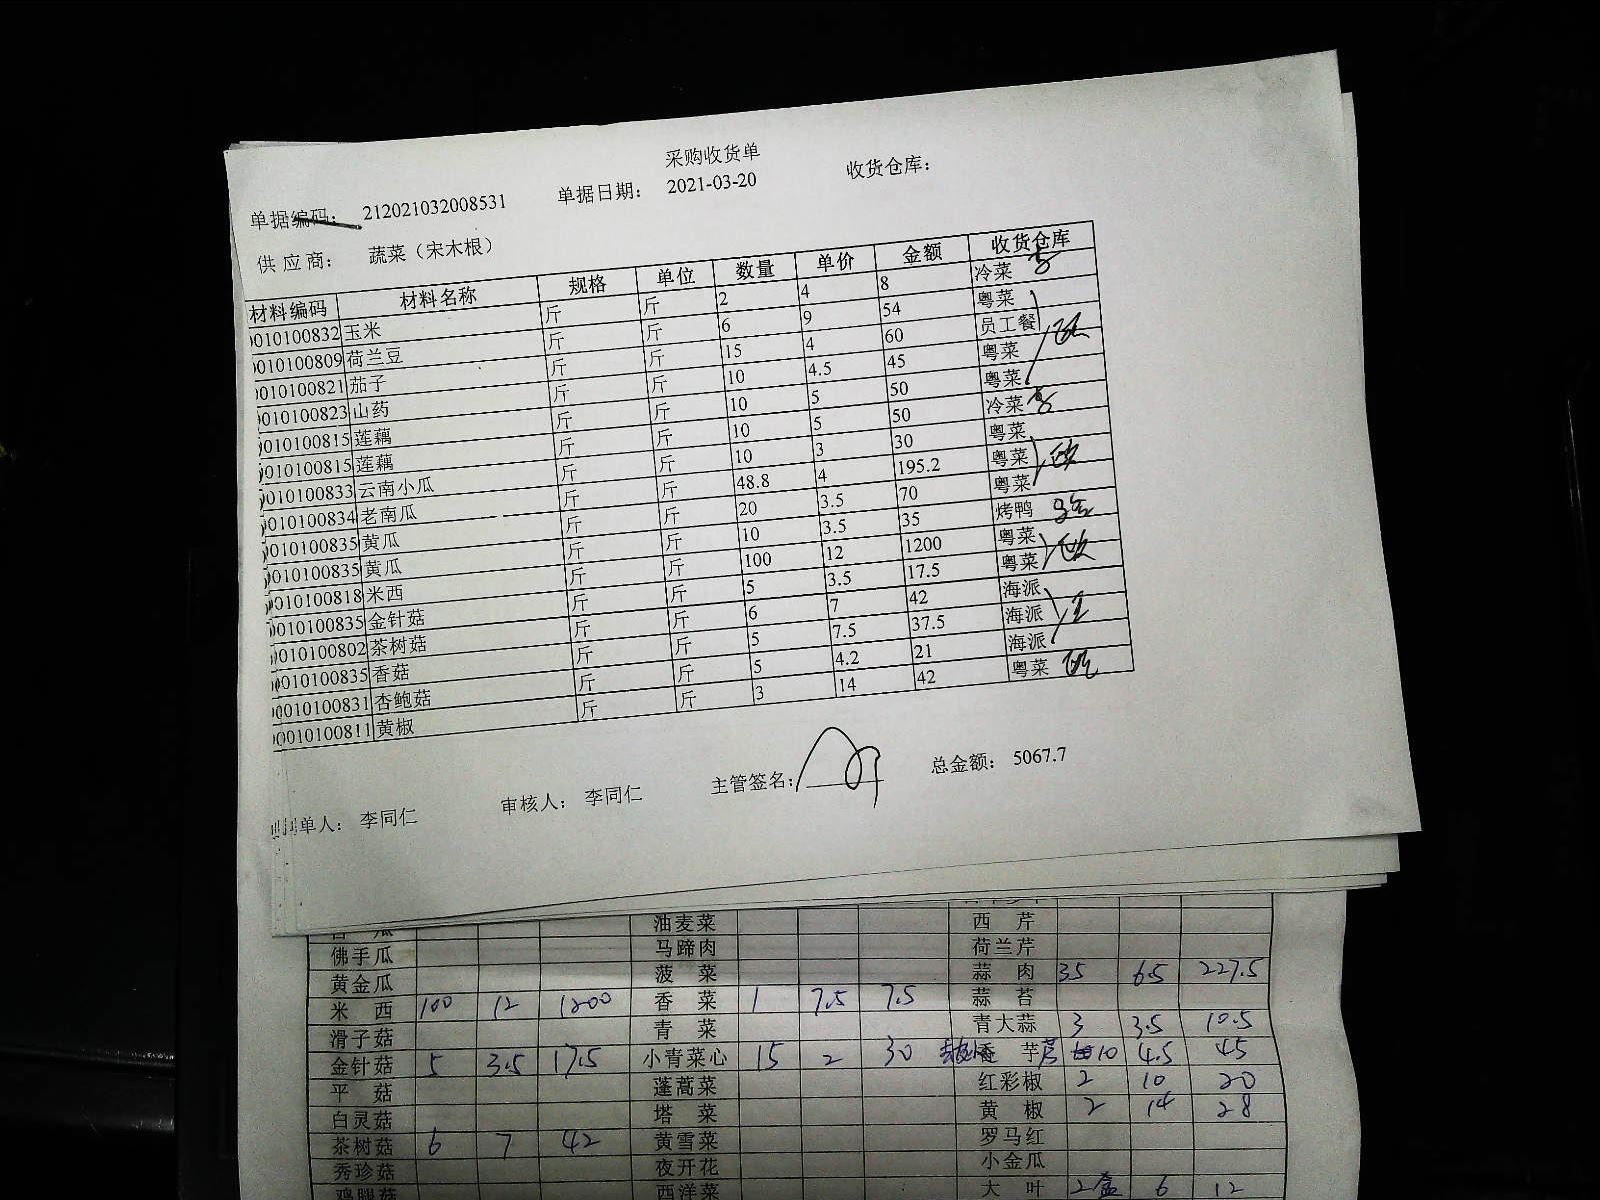 采购收货单
单据编码: 212021032008531 单据日期: 2021-03-20 收货仓库:
供应商: 蔬菜（宋木根）
材料编码 材料名称 规格 单位 数量 单价 金额 收货仓库
010100832 玉米 斤 斤 2 4 8 冷菜
010100809 荷兰豆 斤 斤 6 9 54 粤菜
010100821 茄子 斤 斤 15 4 60 员工餐
010100823 山药 斤 斤 10 4.5 45 粤菜
010100815 莲藕 斤 斤 10 5 50 粤菜
010100815 莲藕 斤 斤 10 5 50 冷菜
010100833 云南小瓜 斤 斤 10 3 30 粤菜
010100834 老南瓜 斤 斤 48.8 4 195.2 粤菜
010100835 黄瓜 斤 斤 20 3.5 70 粤菜
010100835 黄瓜 斤 斤 10 3.5 35 烤鸭
010100818 米西 斤 斤 100 12 1200 粤菜
010100835 金针菇 斤 斤 5 3.5 17.5 粤菜
010100802 茶树菇 斤 斤 6 7 42 海派
010100835 香菇 斤 斤 5 7.5 37.5 海派
0010100831 杏鲍菇 斤 斤 5 4.2 21 海派
0010100811 黄椒 斤 斤 3 14 42 粤菜
单人: 李同仁 审核人: 李同仁 主管签名: 总金额: 5067.7
油麦菜 西芹
佛手瓜 马蹄肉 荷兰芹
黄金瓜 菠菜 蒜肉 35 6.5 227.5
米西 100 12 1200 香菜 1 7.5 7.5 蒜苔
滑子菇 青菜 青大蒜 3 3.5 10.5
金针菇 5 3.5 17.5 小青菜心 15 2 30 芋 10 4.5 45
平菇 蓬蒿菜 红彩椒 2 10 20
白灵菇 塔菜 黄椒 2 14 28
茶树菇 6 7 42 黄雪菜 罗马红
秀珍菇 夜开花 小金瓜
鸡腿菇 西洋菜 大叶 2盒 6 12